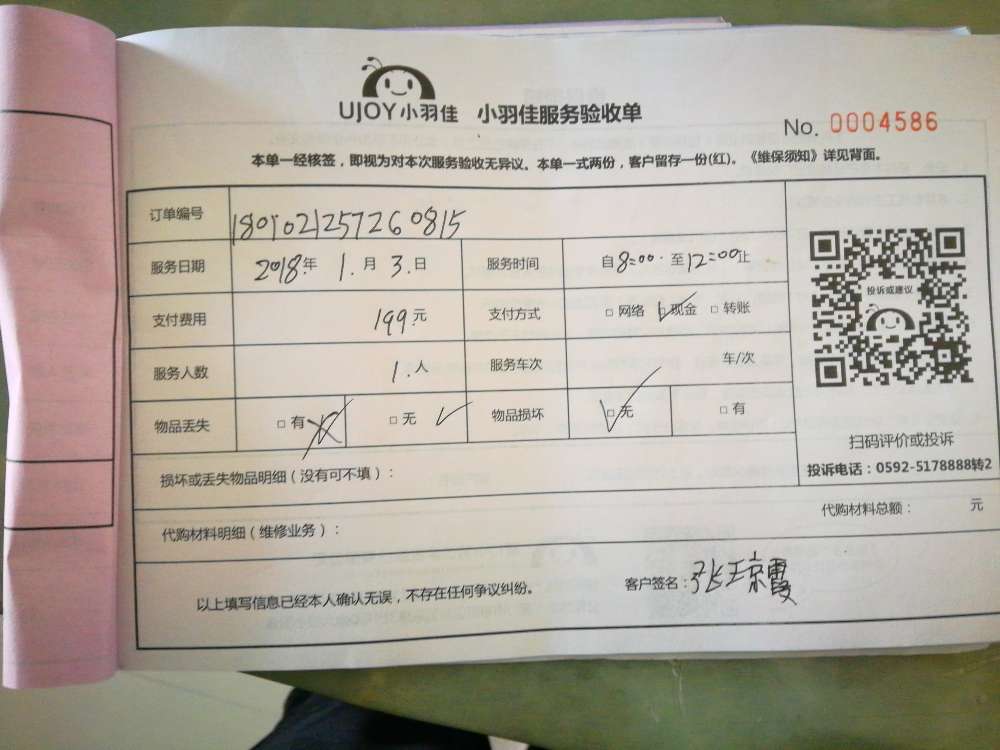 UJOY小羽佳 小羽佳服务验收单
No. 0004586
本单一经核签，即视为对本次服务验收无异议。本单一式两份，客户留存一份(红)。《维保须知》详见背面。
订单编号 1801021257260815
服务日期 2018年 1.月 3.日 服务时间 自8:00.至12:00止
支付费用 199.元 支付方式 □网络 □现金 □转账
服务人数 1.人 服务车次 车/次
物品丢失 □有 □无 物品损坏 □无 □有
投诉或建议
扫码评价或投诉
投诉电话：0592-5178888转2
损坏或丢失物品明细（没有可不填）：
代购材料明细（维修业务）： 代购材料总额： 元
以上填写信息已经本人确认无误，不存在任何争议纠纷。 客户签名：张琼霞